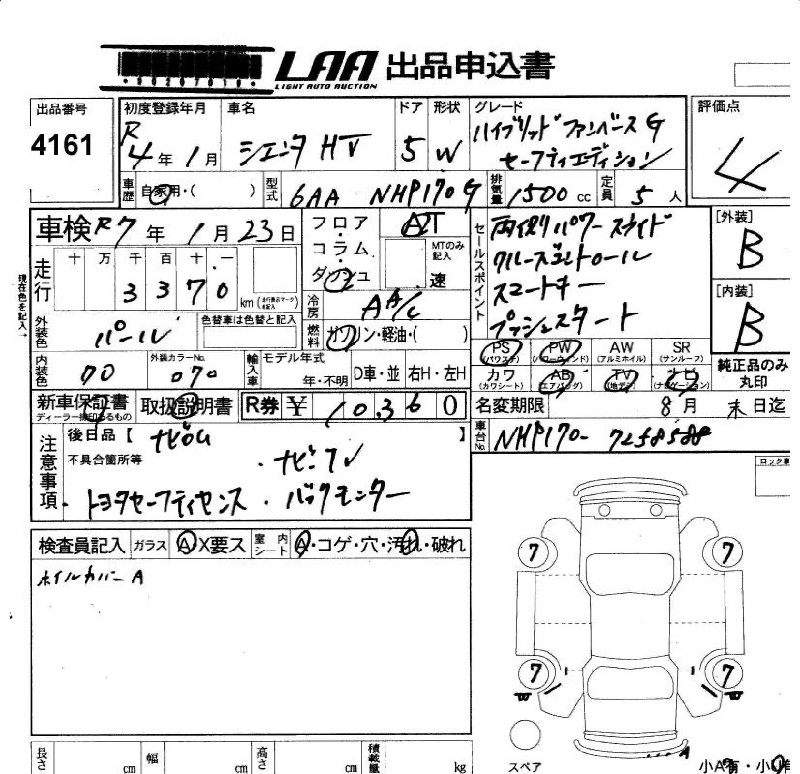 LAA 出品申込書
LIGHT AUTO AUCTION
出品番号 4161
初度登録年月 R4年1月
車名 シエンタ HV
ドア 5 形状 W
グレード ハイブリッド ファンベースG
セーフティエディション
評価点 4
車歴 自家用・( )
型式 6AA NHP170G
排気量 1500 cc
定員 5人
車検 R7年1月23日
フロア・コラム・ダッシュ
AT
MTのみ記入 速
セールスポイント
両側パワースライド
クルーズコントロール
スマートキー
プッシュスタート
[外装] B
[内装] B
現在色を記入→
走行 十万千百十一
3370 km (走行表示マーク記入)
冷房 AA/C
外装色 パール
色替車は色替と記入
燃料 ガソリン・軽油・( )
PS (パワステ) PW (パワーウィンド) AW (アルミホイル) SR (サンルーフ)
カワ (カワシート) AB (エアバッグ) TV (地デジ) ナビ (ナビゲーション)
純正品のみ丸印
内装色 70
外装カラーNo. 070
輸入車 モデル年式 年・不明 D車・並 右H・左H
新車保証書 ディーラー捺印あるもの
取扱説明書
R券 ¥ 10360
名変期限 8月末日迄
車台No. NHP170-7258588
注意事項
後日品【 ナビROM 】
不具合箇所等
・ナビTV
・トヨタセーフティセンス ・バックモニター
検査員記入 ガラス A X要ス 室内シート A・コゲ・穴・汚れ・破れ
ホイルカバーA
7 7
7 7
スペア
A
長さ cm 幅 cm 高さ cm 積載量 kg